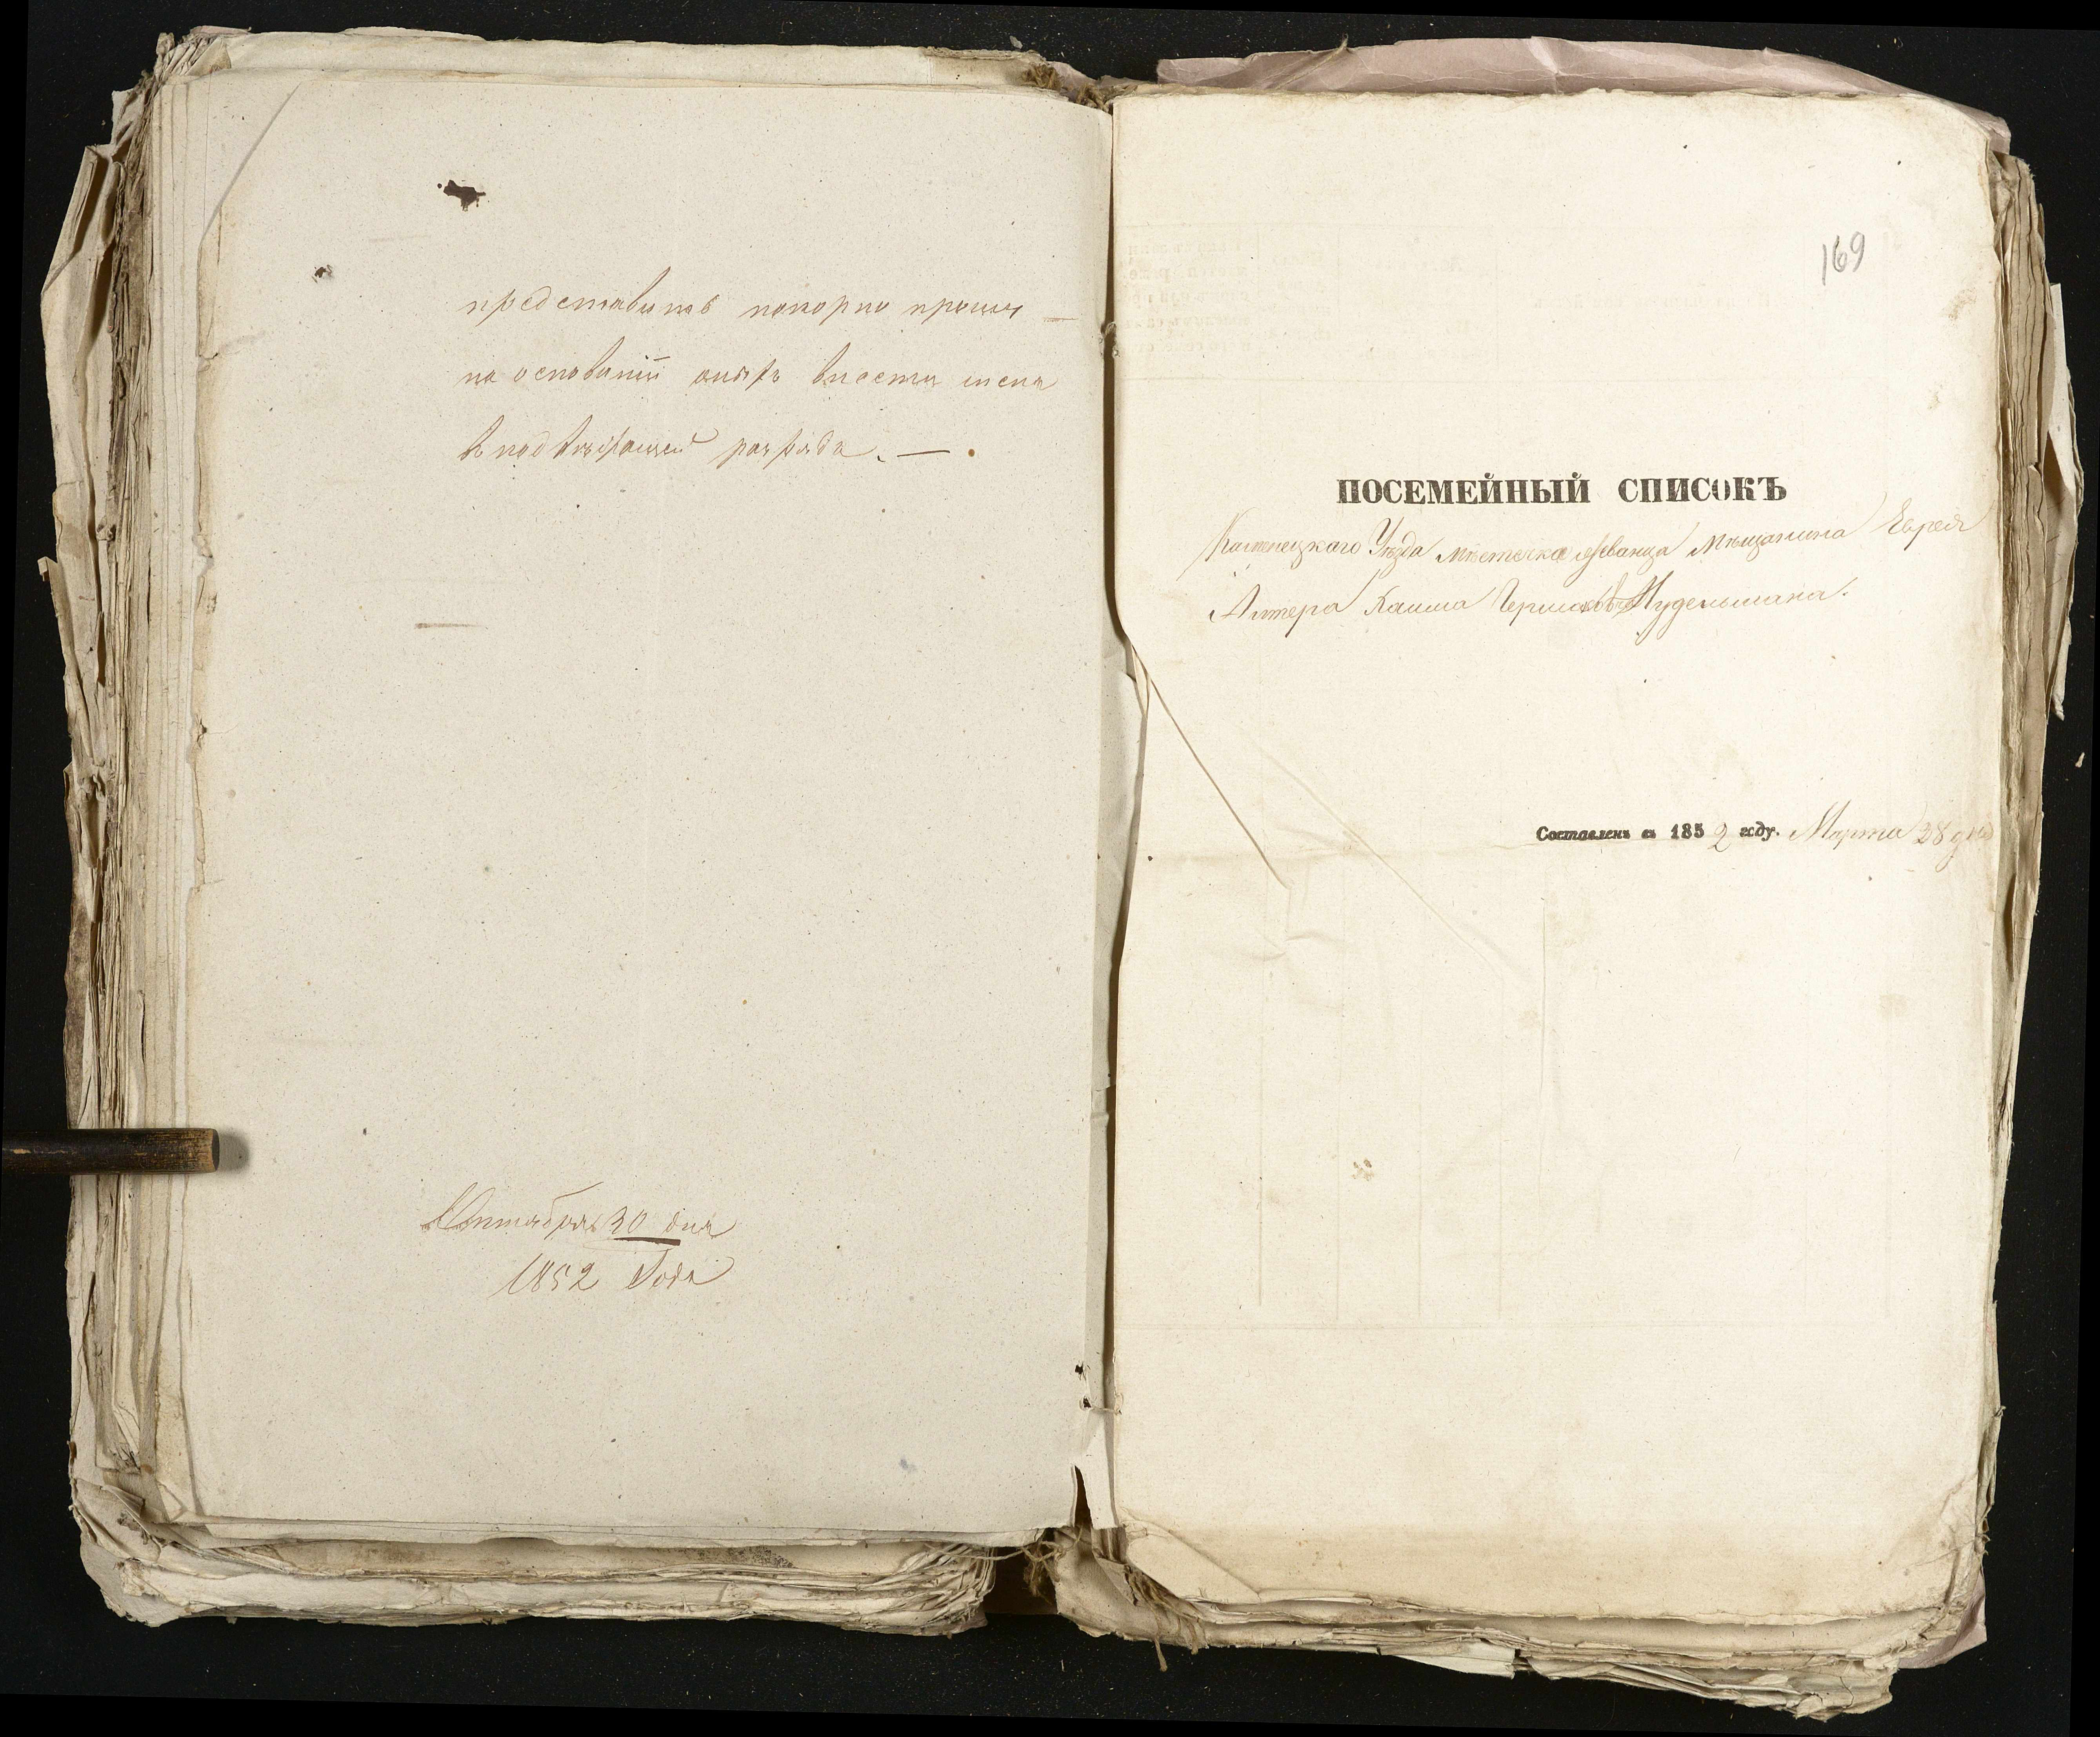 представивъ покорно прошу —
на основаніи онихъ внести меня
въ надлежащей разрядъ. —
Октября 30 дня
1852 Года
169
ПОСЕМЕЙНЫЙ СПИСОКЪ
Каменецкаго Уѣзда мѣстечка Жванца мѣщанина Еврея
Алтера Хаима Гершковича
Составленъ въ 1852 году. Марта 28 дня